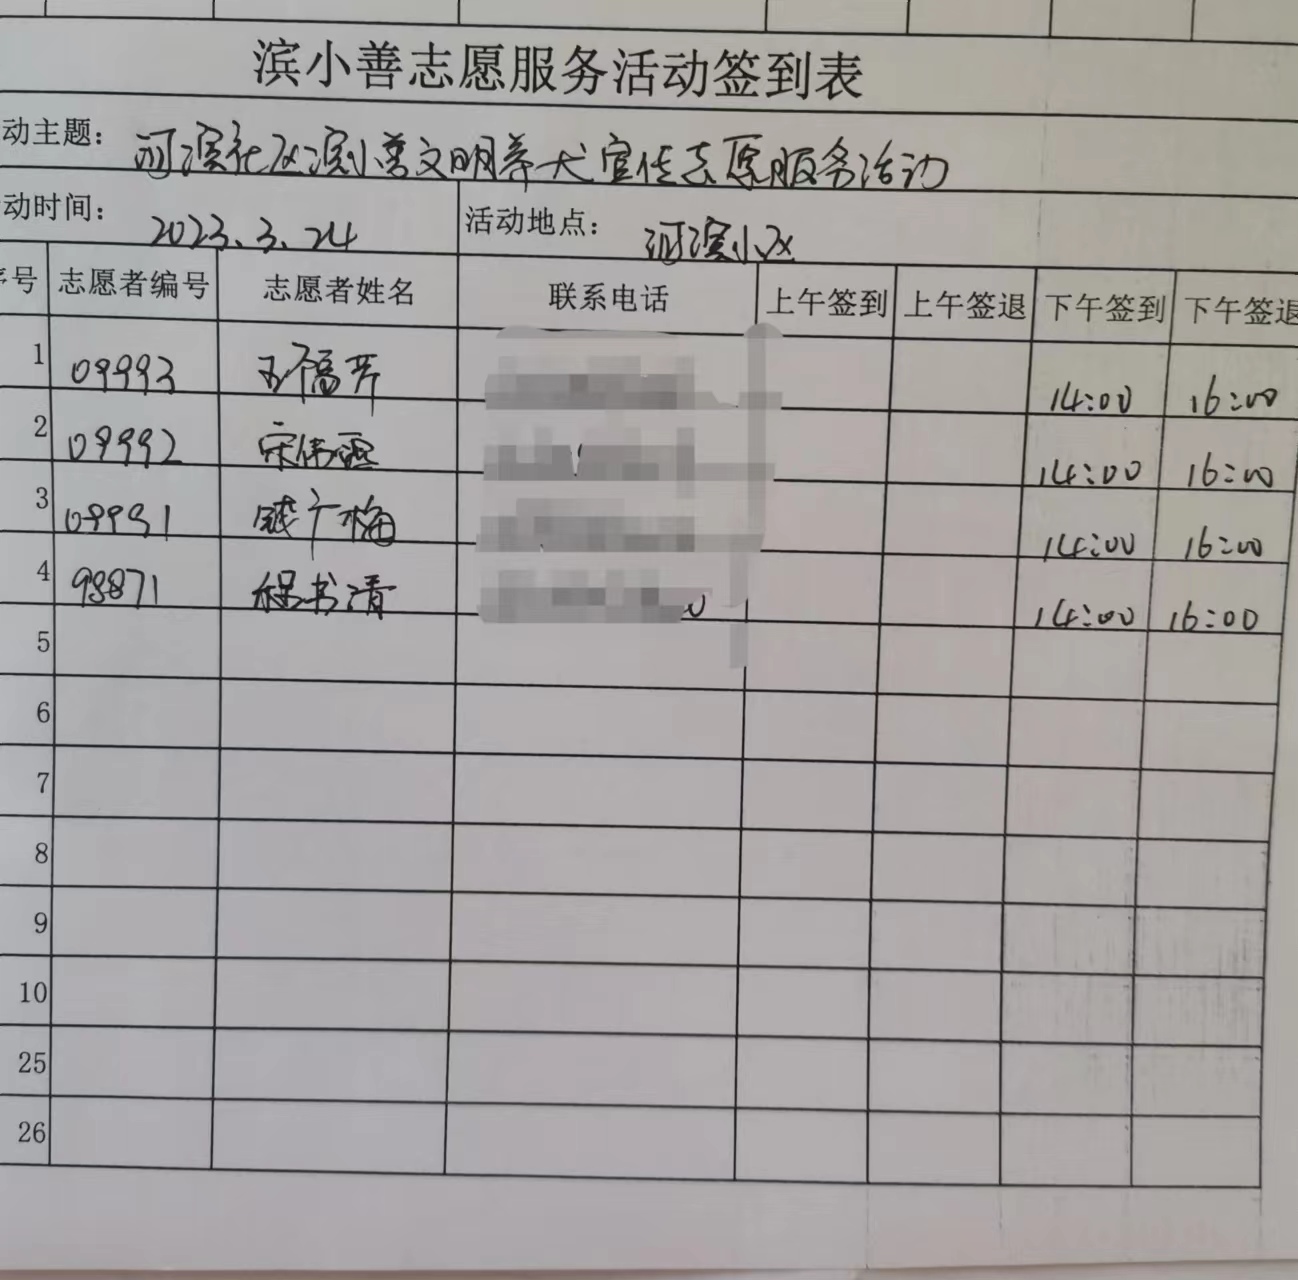 滨小善志愿服务活动签到表
动主题： 河滨社区滨小善文明养犬宣传志愿服务活动
动时间： 2023.3.24 活动地点： 河滨小区
序号 志愿者编号 志愿者姓名 联系电话 上午签到 上午签退 下午签到 下午签退
1 09993 王福芹 14:00 16:00
2 09992 宋伟霞 14:00 16:00
3 09991 钱广梅 14:00 16:00
4 98871 程书清 14:00 16:00
5
6
7
8
9
10
25
26